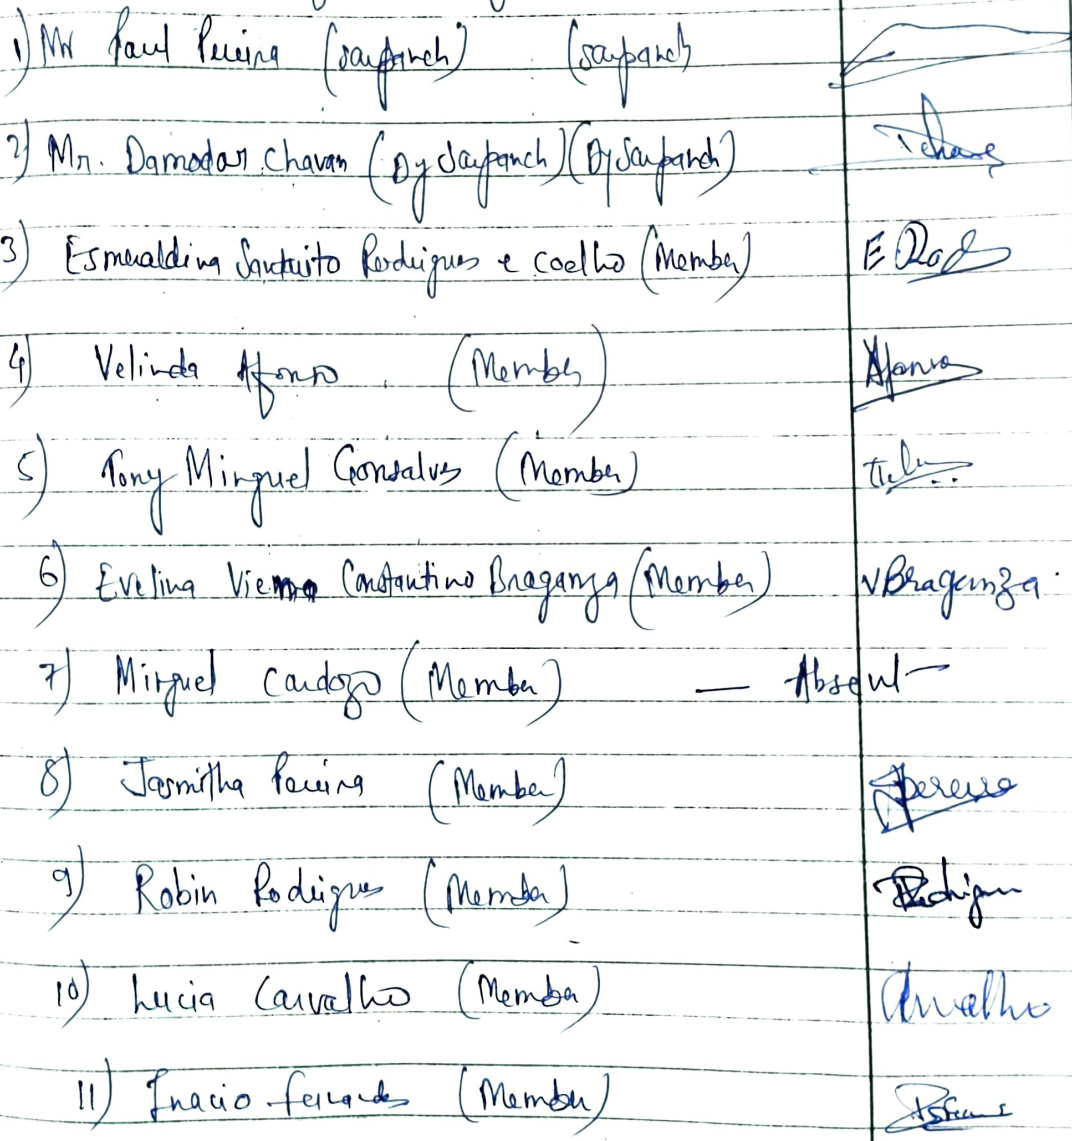 1) Mr Paul Pereira (Sarpanch) (Sarpanch)
2) Mr. Damodar Chavan (Dy Sarpanch) (Dy Sarpanch)
3) Esmeraldina Santrito Rodrigues e Coelho (Member) E Rod
4) Velinda Afonso (Member) Afonso
5) Tony Minguel Gonsalves (Member)
6) Evelina Viena Constantino Braganza (Member) VBraganza
7) Minguel Cardozo (Member) — Absent —
8) Jasmitha Pereira (Member) Pereira
9) Robin Rodrigues (Member) Rodrigues
10) Lucia Carvalho (Member) Carvalho
11) Inacio Fernandes (Member)